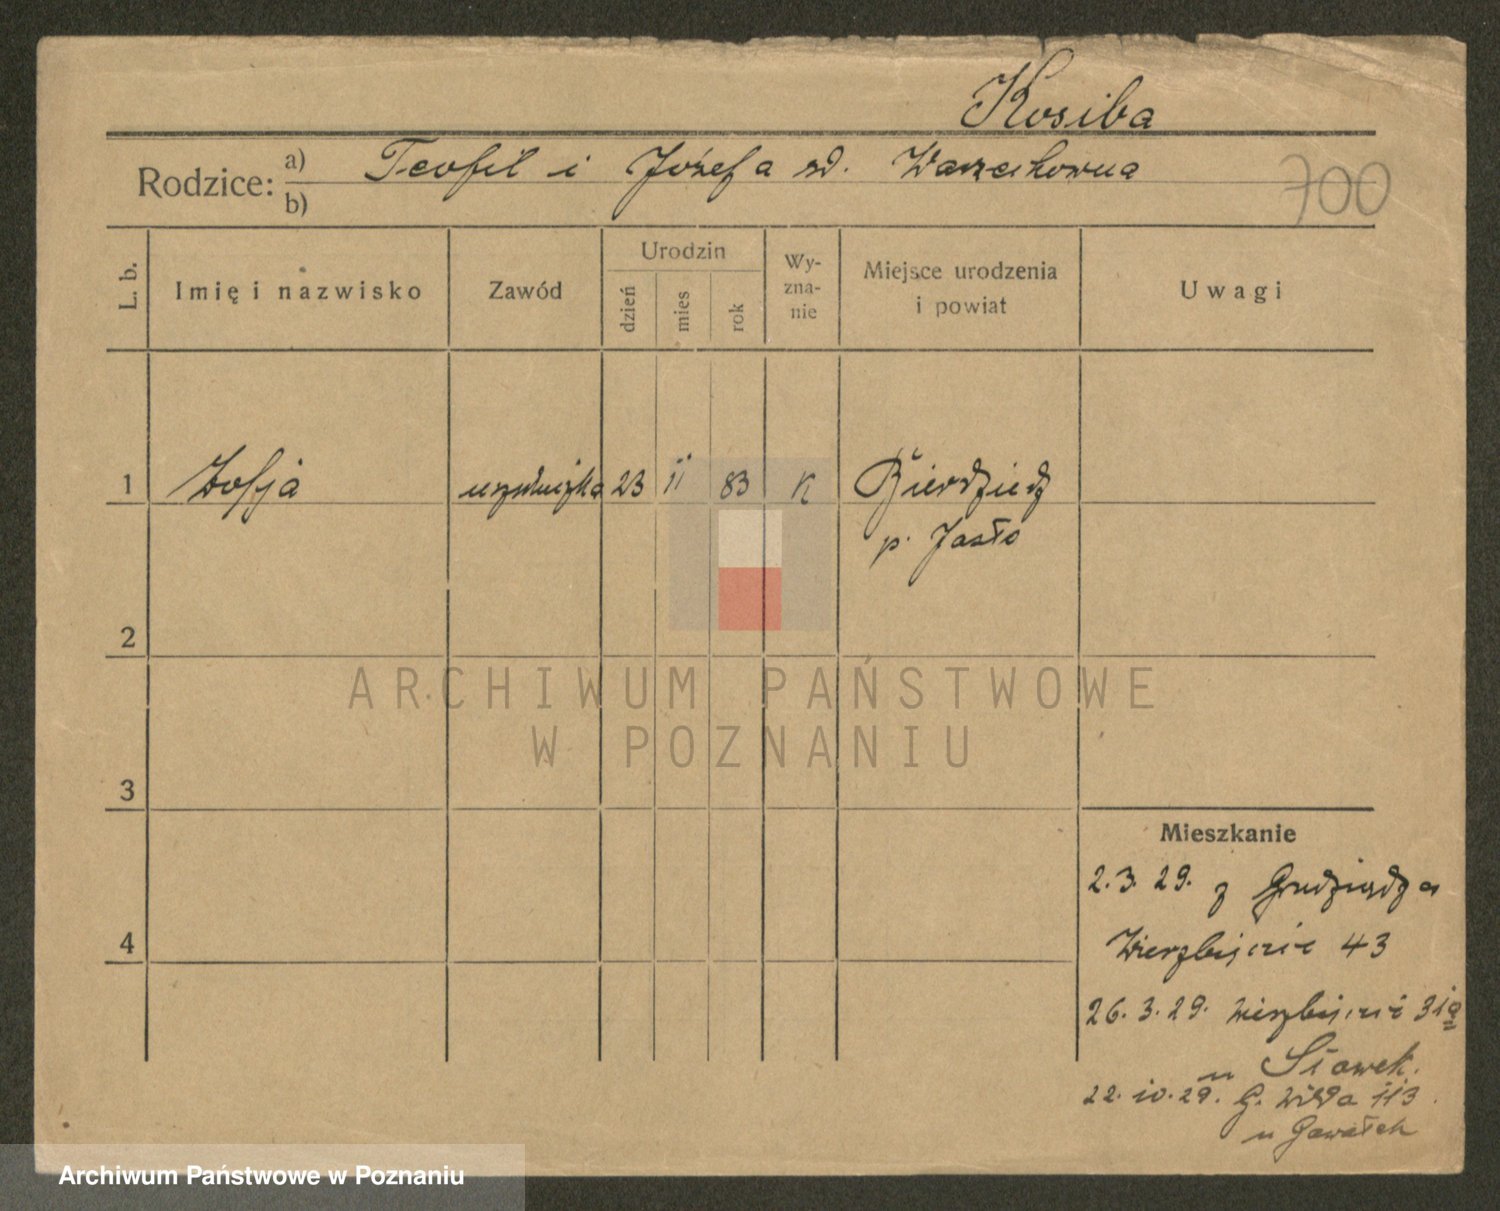 Kosiba
Rodzice: a) Teofil i Józefa zd. Warzechowna
b)
700
L. b. Imię i nazwisko Zawód Urodzin dzień mies rok Wy-zna-nie Miejsce urodzenia i powiat Uwagi
1 Zofja 23 11 83 K Bierdziedz
p. Jasło
2
ARCHIWUM PAŃSTWOWE
W POZNANIU
3
Mieszkanie
2.3.29. z Grudziądza
4
Wierzbięcie 43
26.3.29. Wierzbięcie 31a
u Sławek.
22.10.29. G. Wilda 113.
u Gawałek
Archiwum Państwowe w Poznaniu